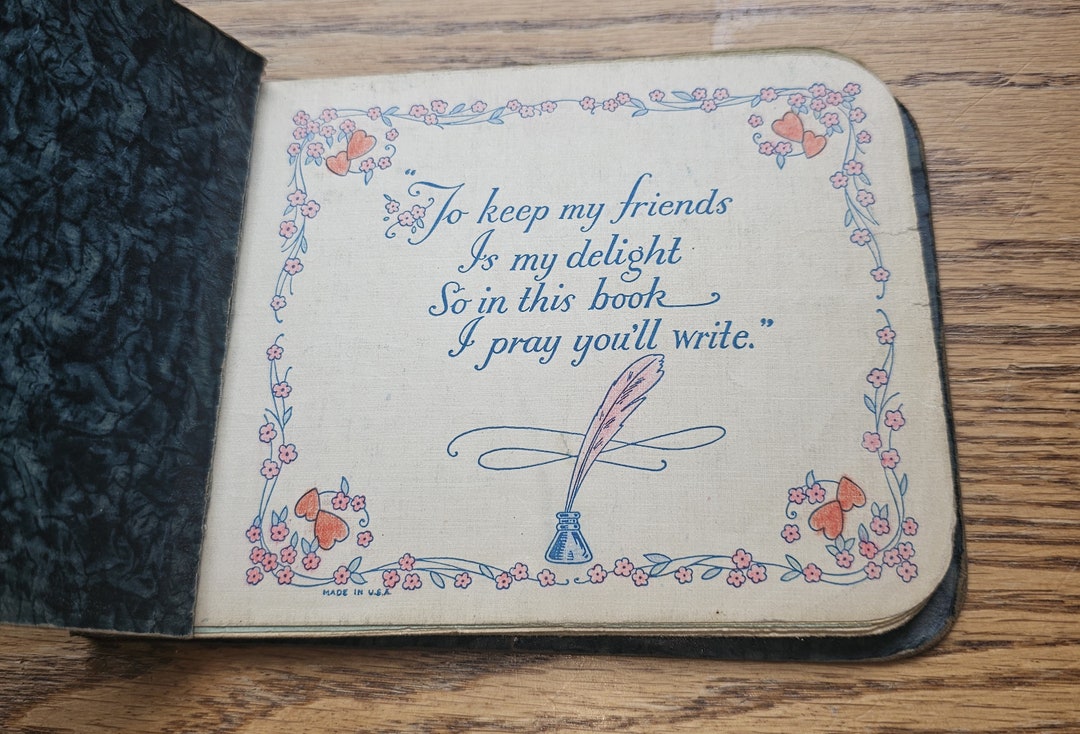 "To keep my friends
Is my delight
So in this book
I pray you'll write."
MADE IN U.S.A.